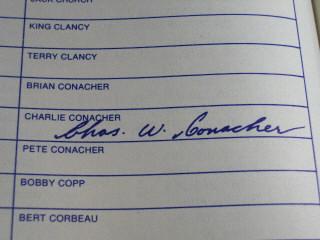 JACK CHURCH
KING CLANCY
TERRY CLANCY
BRIAN CONACHER
CHARLIE CONACHER
Chas. W. Conacher
PETE CONACHER
BOBBY COPP
BERT CORBEAU